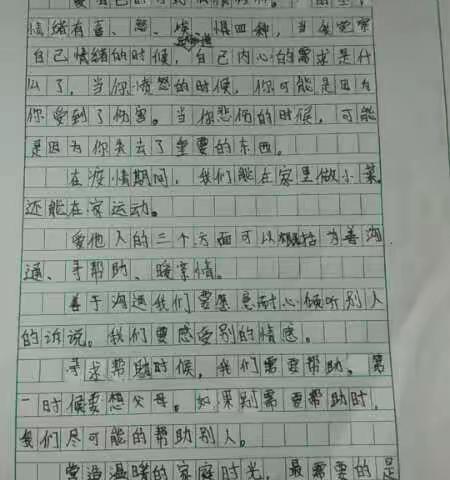 情绪有喜、怒、哀、惧四种，当你觉察
自己情绪的时候，自己内心的需求是什
么了，当你愤怒的时候，你可能是因为
你受到了伤害。当你悲伤的时候，可能
是因为你失去了重要的东西。
在疫情期间，我们能在家里做小菜。
还能在家运动。
爱他人的三个方面可以概括为善沟
通、寻帮助、暖亲情。
善于沟通我们要愿意耐心倾听别人
的诉说。我们要感受别的情感。
寻求帮助时候，我们需要帮助。第
一时候要想父母。如果别需要帮助时，
我们尽可能的帮助别人。
营造温暖的家庭时光，最需要的是